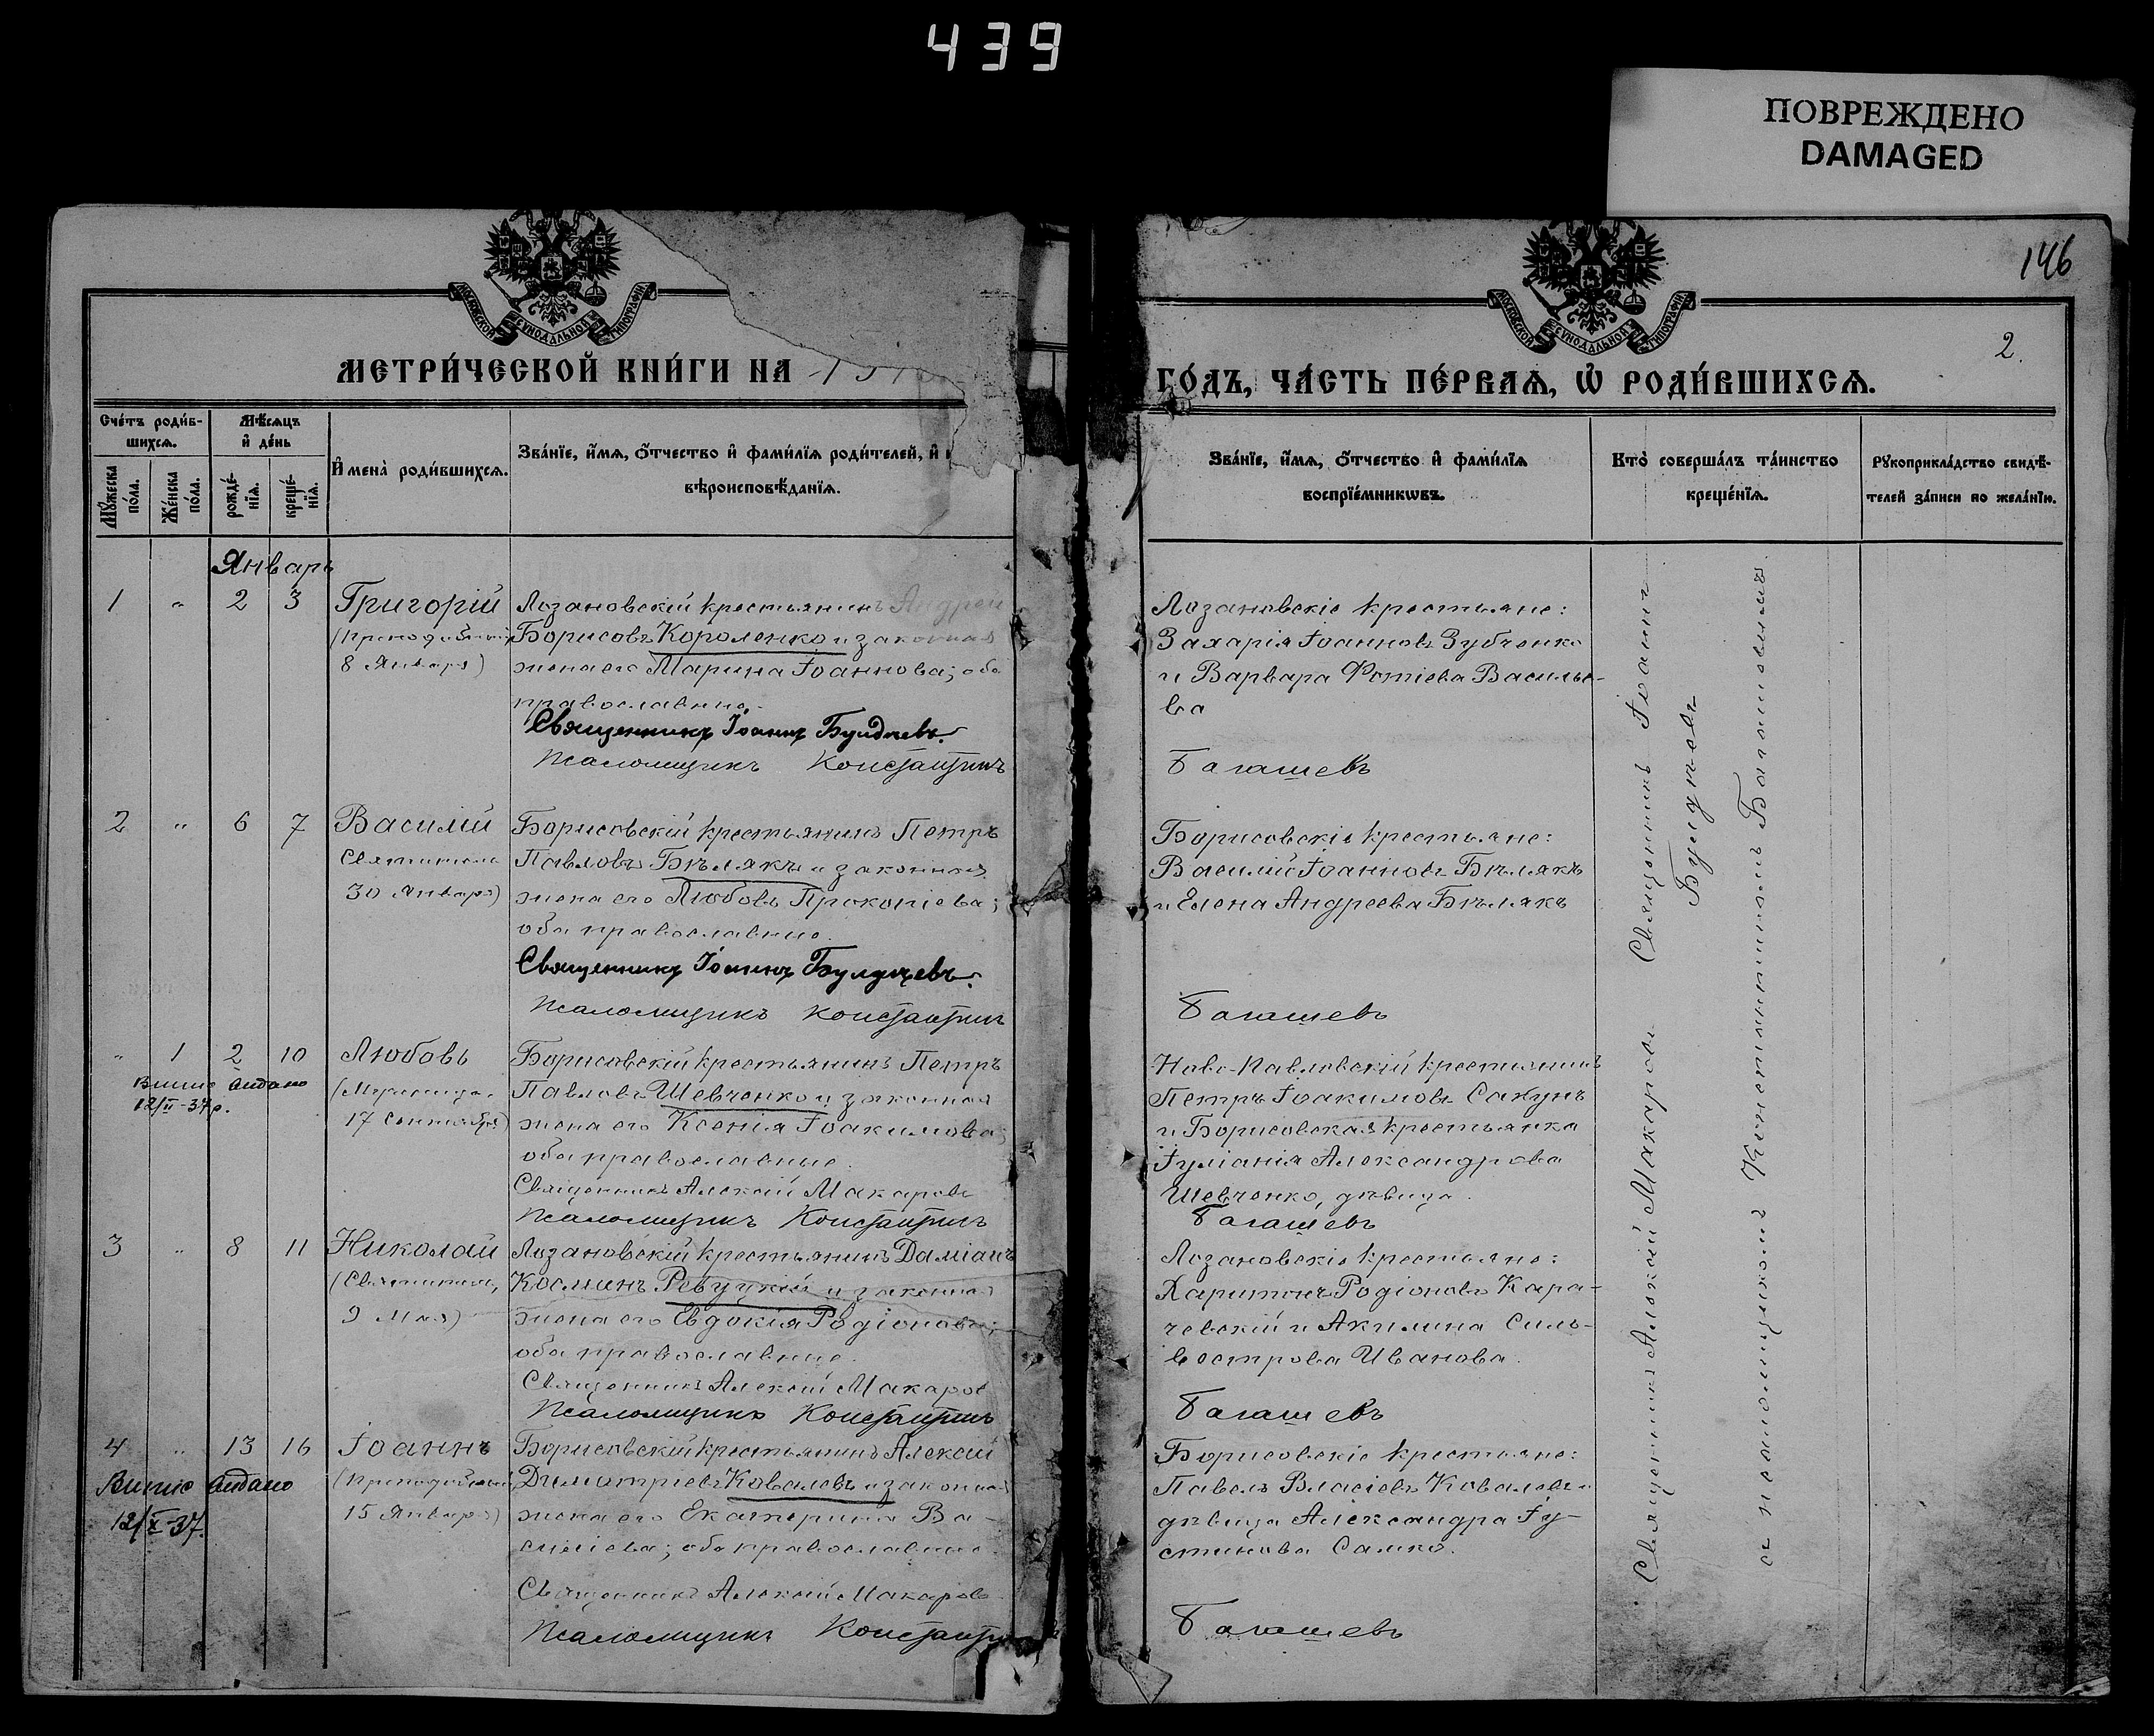 439
ПОВРЕЖДЕНО
DAMAGED
146
2.
МОСКОВСКОЙ СѴНОДАЛЬНОЙ ТИПОГРАФІИ
МОСКОВСКОЙ СѴНОДАЛЬНОЙ ТИПОГРАФІИ
МЕТРИ́ЧЕСКОЙ КНИ́ГИ НА
ГО́ДЪ, ЧА́СТЬ ПЕ́РВАѦ, Ѡ҆ РОДИ́ВШИХСѦ.
Сче́тъ роди́в-
шихсѧ.
Мѣ́сѧцъ
и҆ де́нь
Мꙋ́жеска
по́ла.
Же́нска
по́ла.
рожде́-
нїѧ.
креще́-
нїѧ.
И҆мена̀ роди́вшихсѧ.
Зва́нїе, и҆́мѧ, ѻ҆́тчество и҆ фами́лїѧ роди́телей, и҆
вѣроисповѣ́данїѧ.
Зва́нїе, и҆́мѧ, ѻ҆́тчество и҆ фами́лїѧ
воспрїе́мникѡвъ.
Кто̀ соверша́лъ та́инство
креще́нїѧ.
Рꙋкоприкла́дство свидѣ́-
телей за́писи по жела́нїю.
Январь
1 " 2 3 Григорій
(Преподобный
8 Января)
Лозановскій крестьянинъ Андрей
Борисовъ Короленко и законная
жена его Марина Іоаннова; оба
православные.
Священникъ Іоаннъ Булдчевъ.
Псаломщикъ Константинъ
Лозановскіе крестьяне:
Захарія Іоанновъ Зубченко
и Варвара Фотіева Василье-
ва
Багашевъ
2 " 6 7 Василій
Святитель
30 Января)
Борисовскій крестьянинъ Петръ
Павловъ Бѣлякъ и законная
жена его Любовь Прокопіева;
оба православные.
Священникъ Іоаннъ
Псаломщикъ Константинъ
Борисовскіе крестьяне:
Василій Іоанновъ Бѣлякъ
и Елена Андреева Бѣлякъ
Багашевъ
" 1 2 10 Любовь
(Мученица
17 Сентября)
Выпис видано
12/II-37р.
Борисовскій крестьянинъ Петръ
Павловъ Шевченко и законная
жена его Ксенія Іоакимова;
оба православные.
Священникъ Алексій Макаровъ
Псаломщикъ Константинъ
Ново-Павловскій крестьянинъ
Петръ Іоакимовъ Сакунъ
и Борисовская крестьянка
Іуліанія Александрова
Шевченко, дѣвица.
Багашевъ
3 " 8 11 Николай
(Святитель,
9 Мая)
Лозановскій крестьянинъ Даміанъ
Косминъ Ревуцкій и законная
жена его Евдокія Родіонова;
оба православные.
Священникъ Алексій Макаров
Псаломщикъ Константинъ
Лозановскіе крестьяне:
Харитонъ Родіоновъ Кара-
чевскій и Акилина Силь-
вестрова Иванова.
Багашевъ
4 " 13 16 Іоаннъ
(Преподобный
15 Января)
Выпис видано
12/X-37.
Борисовскій крестьянинъ Алексій
Димитріевъ Ковалевъ и законная
жена его Екатерина Ва-
силіева; оба православные.
Священникъ Алексій Макаровъ
Псаломщикъ Константи
Борисовскіе крестьяне:
Павелъ Власіевъ Ковалевъ и
дѣвица Александра Іу-
стинова Самко.
Багашевъ
Священникъ Алексій Макаровъ Священникъ Іоаннъ
съ псаломщикомъ Константиномъ